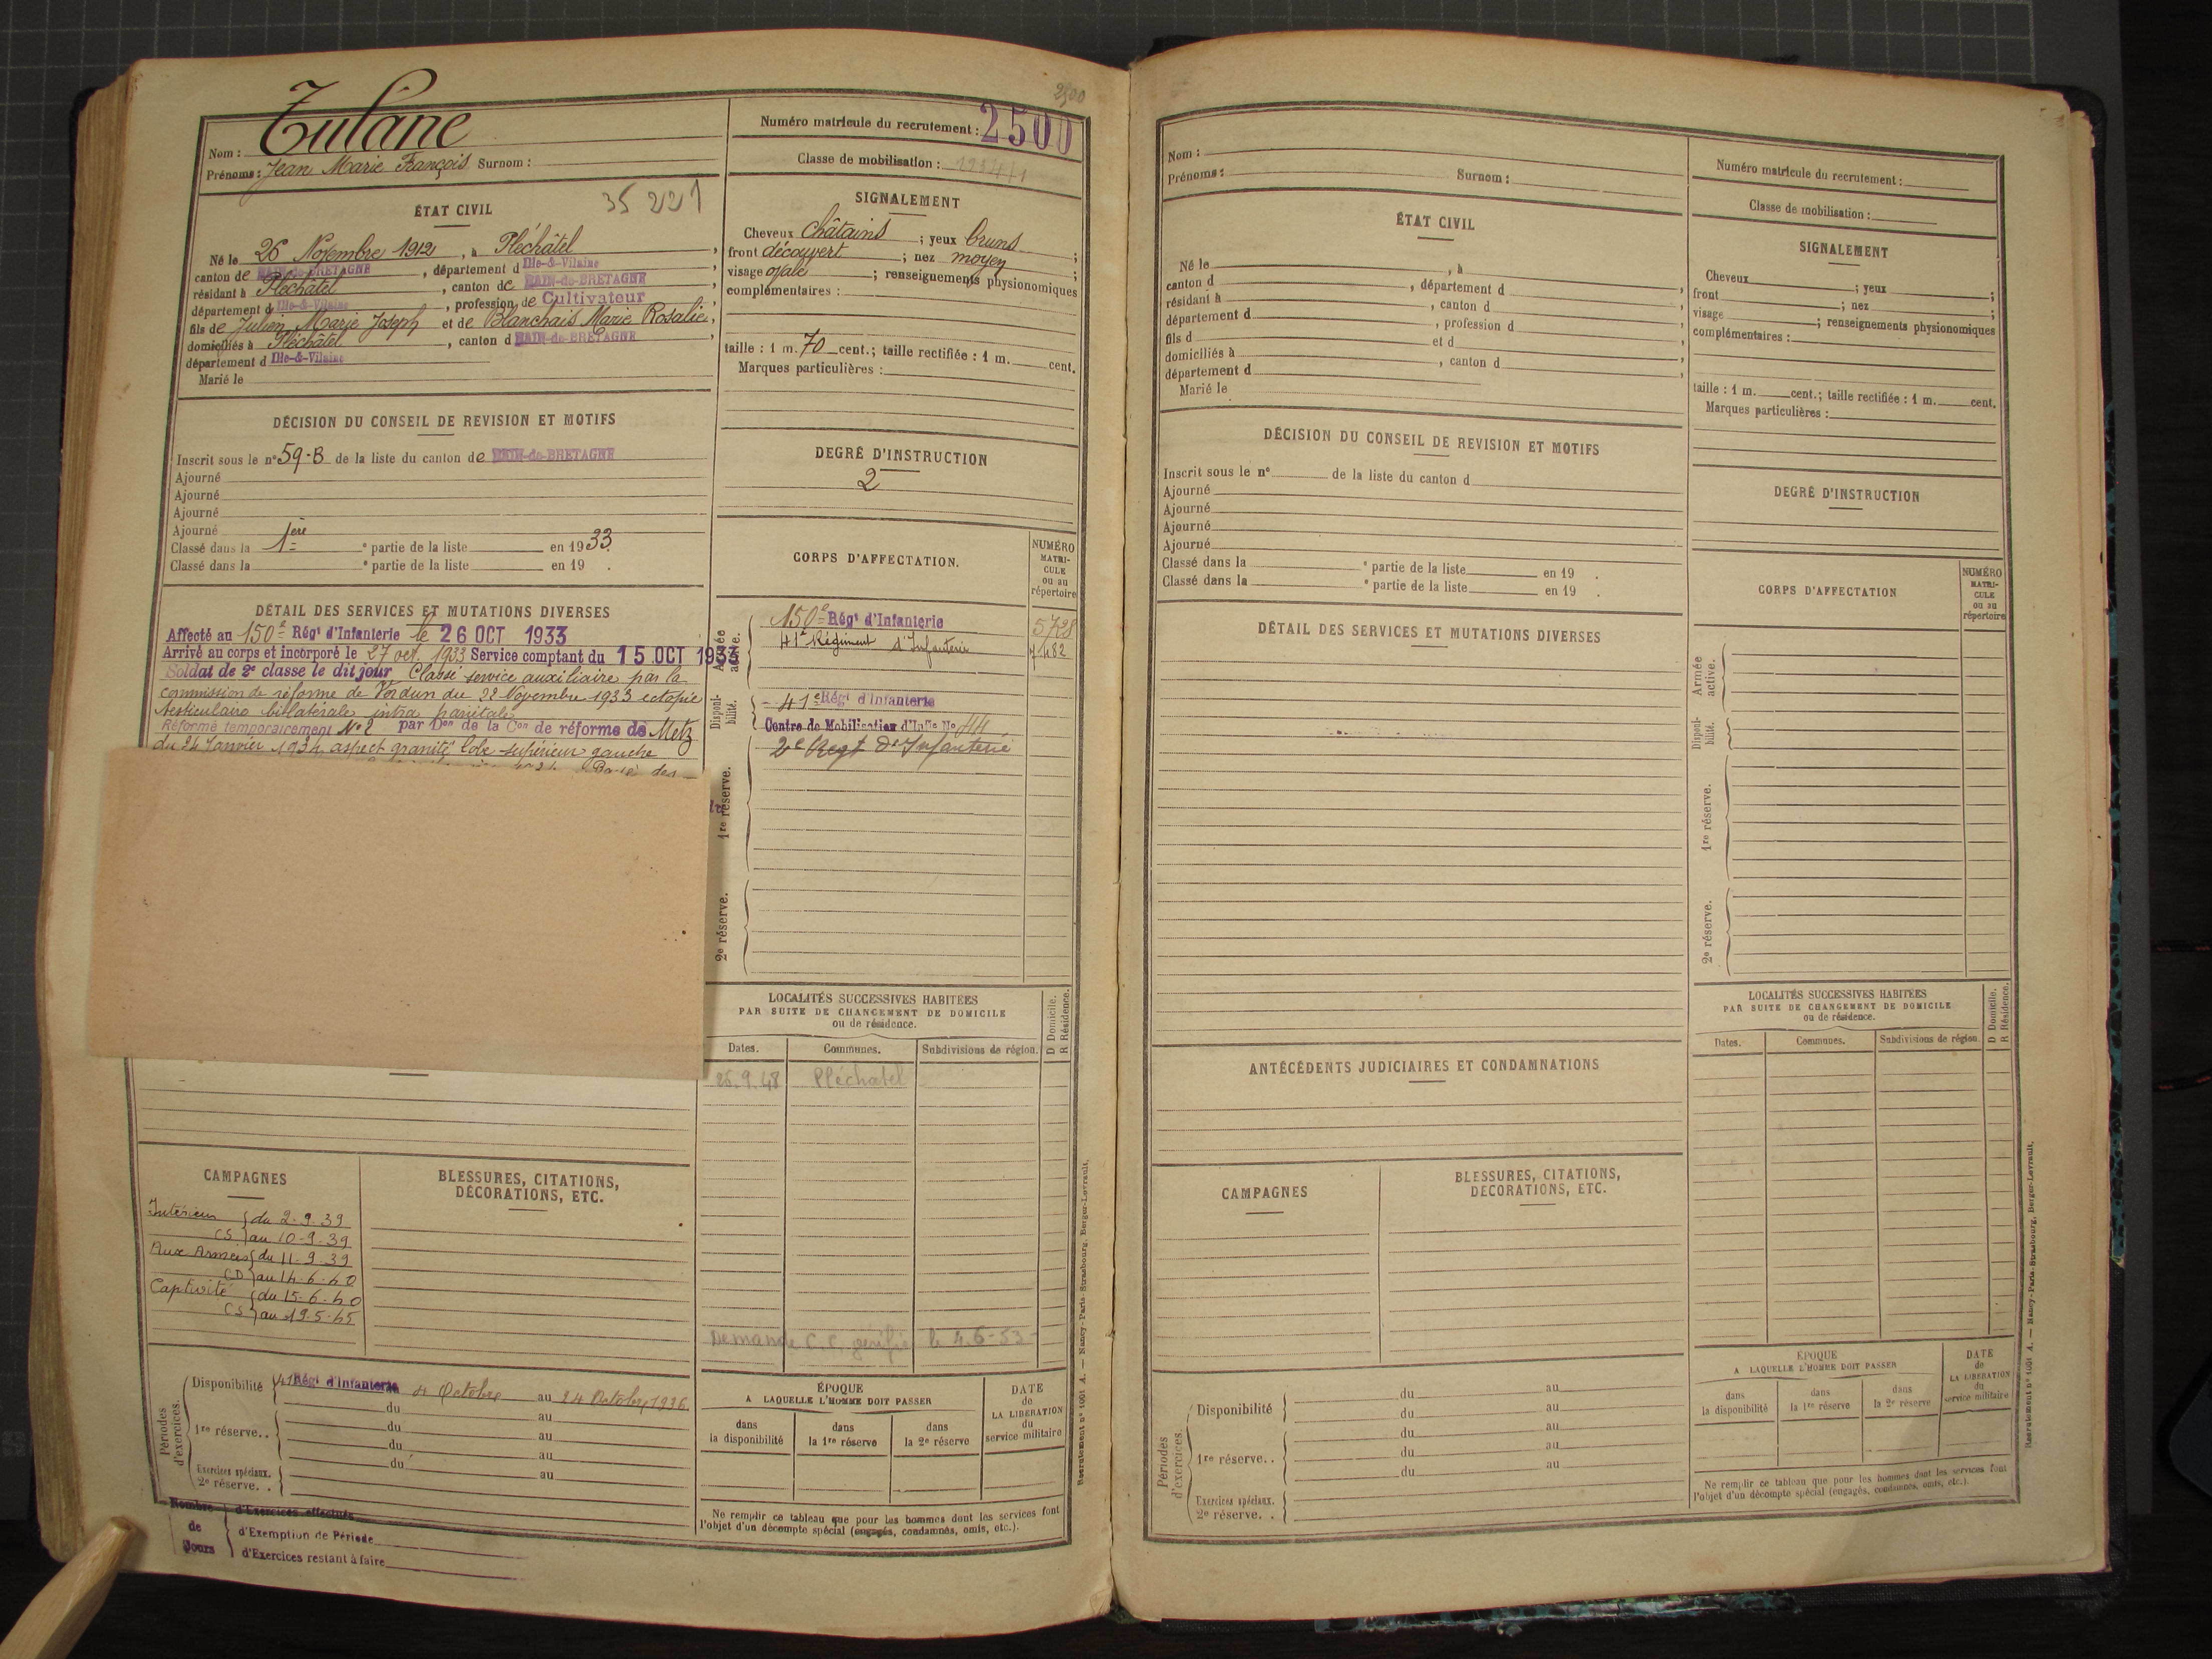 2500
Nom : Tulane
Prénoms : Jean Marie François Surnom :
Numéro matricule du recrutement : 2500
Classe de mobilisation : 1934/1
35 221
ÉTAT CIVIL
Né le 26 Novembre 1912, à Pléchâtel,
canton de BAIN-de-BRETAGNE, département d Ille-&-Vilaine,
résidant à Pléchâtel, canton de BAIN-de-BRETAGNE,
département d Ille-&-Vilaine, profession de Cultivateur
fils de Julien Marie Joseph et de Blanchais Marie Rosalie,
domiciliés à Pléchâtel, canton d BAIN-de-BRETAGNE,
département d Ille-&-Vilaine
Marié le
SIGNALEMENT
Cheveux châtains ; yeux bruns ;
front découvert ; nez moyen ;
visage ovale ; renseignements physionomiques
complémentaires :
taille : 1 m. 70 cent.; taille rectifiée : 1 m. cent.
Marques particulières :
DÉCISION DU CONSEIL DE REVISION ET MOTIFS
Inscrit sous le n° 59-B de la liste du canton de BAIN-de-BRETAGNE
Ajourné
Ajourné
Ajourné
Ajourné
Classé dans la 1ère e partie de la liste en 1933.
Classé dans la e partie de la liste en 19 .
DEGRÉ D'INSTRUCTION
2
DÉTAIL DES SERVICES ET MUTATIONS DIVERSES
Affecté au 150e Régt d'Infanterie le 26 OCT 1933
Arrivé au corps et incorporé le 27 oct. 1933 Service comptant du 15 OCT 1933
Soldat de 2e classe le dit jour Classé service auxiliaire par la
commission de réforme de Verdun du 22 Novembre 1933 ectopie
testiculaire bilatérale intra pariétale
Réformé temporairement N° 2 par Don de la Con de réforme de Metz
du 24 Janvier 1934 aspect granité lobe supérieur gauche
CORPS D'AFFECTATION.
NUMÉRO MATRI-CULE ou au répertoire
Armée active.
150e Régt d'Infanterie 5728
41e Régiment d'Infanterie
Disponi-bilité.
41e Régt d'Infanterie
Centre de Mobilisation d'Infie No 44
2e Regt d'Infanterie
1re réserve.
2e réserve.
LOCALITÉS SUCCESSIVES HABITÉES
PAR SUITE DE CHANGEMENT DE DOMICILE
ou de résidence.
D Domicile.
R Résidence.
Dates. Communes. Subdivisions de région.
26.9.48 Pléchatel
Demande C.C. le 4.6-53
CAMPAGNES
Intérieur du 2-9-39
CS au 10-9-39
Aux Armées du 11-9-39
CD au 14-6-40
Captivité du 15-6-40
CS au 19-5-45
BLESSURES, CITATIONS,
DÉCORATIONS, ETC.
Périodes d'exercices.
Disponibilité 41 Régt d'Infanterie Octobre au 24 Octobre 1936.
du au
1re réserve.. du au
du au
du au
Exercices spéciaux.
2e réserve. .
Nombre de Jours
d'Exercices effectués
d'Exemption de Période
d'Exercices restant à faire
ÉPOQUE
A LAQUELLE L'HOMME DOIT PASSER
dans la disponibilité
dans la 1re réserve
dans la 2e réserve
DATE de LA LIBÉRATION du service militaire
Ne remplir ce tableau que pour les hommes dont les services font
l'objet d'un décompte spécial (engagés, condamnés, omis, etc.).
Recrutement n° 1001 A. — Nancy-Paris-Strasbourg, Berger-Levrault.
Nom :
Prénoms : Surnom :
Numéro matricule du recrutement :
Classe de mobilisation :
ÉTAT CIVIL
Né le , à ,
canton d , département d ,
résidant à , canton d ,
département d , profession d
fils d et d ,
domiciliés à , canton d ,
département d
Marié le
SIGNALEMENT
Cheveux ; yeux ;
front ; nez ;
visage ; renseignements physionomiques
complémentaires :
taille : 1 m. cent.; taille rectifiée : 1 m. cent.
Marques particulières :
DÉCISION DU CONSEIL DE REVISION ET MOTIFS
Inscrit sous le n° de la liste du canton d
Ajourné
Ajourné
Ajourné
Ajourné
Classé dans la e partie de la liste en 19 .
Classé dans la e partie de la liste en 19 .
DEGRÉ D'INSTRUCTION
DÉTAIL DES SERVICES ET MUTATIONS DIVERSES
CORPS D'AFFECTATION
NUMÉRO MATRI-CULE ou au répertoire
Armée active.
Disponi-bilité.
1re réserve.
2e réserve.
ANTÉCÉDENTS JUDICIAIRES ET CONDAMNATIONS
LOCALITÉS SUCCESSIVES HABITÉES
PAR SUITE DE CHANGEMENT DE DOMICILE
ou de résidence.
D Domicile.
R Résidence.
Dates. Communes. Subdivisions de région
CAMPAGNES
BLESSURES, CITATIONS,
DÉCORATIONS, ETC.
Périodes d'exercices.
Disponibilité du au
du au
1re réserve.. du au
du au
du au
Exercices spéciaux.
2e réserve. .
ÉPOQUE
A LAQUELLE L'HOMME DOIT PASSER
dans la disponibilité
dans la 1re réserve
dans la 2e réserve
DATE de LA LIBÉRATION du service militaire
Ne remplir ce tableau que pour les hommes dont les services font
l'objet d'un décompte spécial (engagés, condamnés, omis, etc.).
Recrutement n° 1001 A. — Nancy-Paris-Strasbourg, Berger-Levrault.